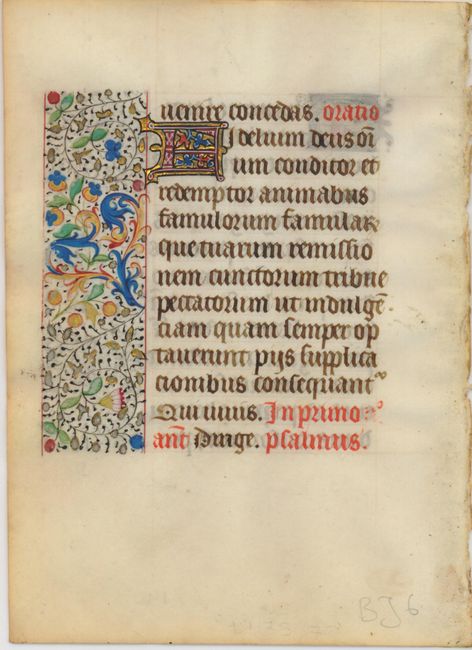 uenire concedas. oratio
Fidelium deus oi͂
um conditor et
redemptor animabus
famulorum famulaꝝ
que tuarum remissio
nem cunctorum tribue
peccatorum ut indulgē
ciam quam semper op
tauerunt pijs supplica
cionibus consequantᷣ
Qui uiuis. In primo nᵒ
ant̄ Dirige. psalmus.
BJ6